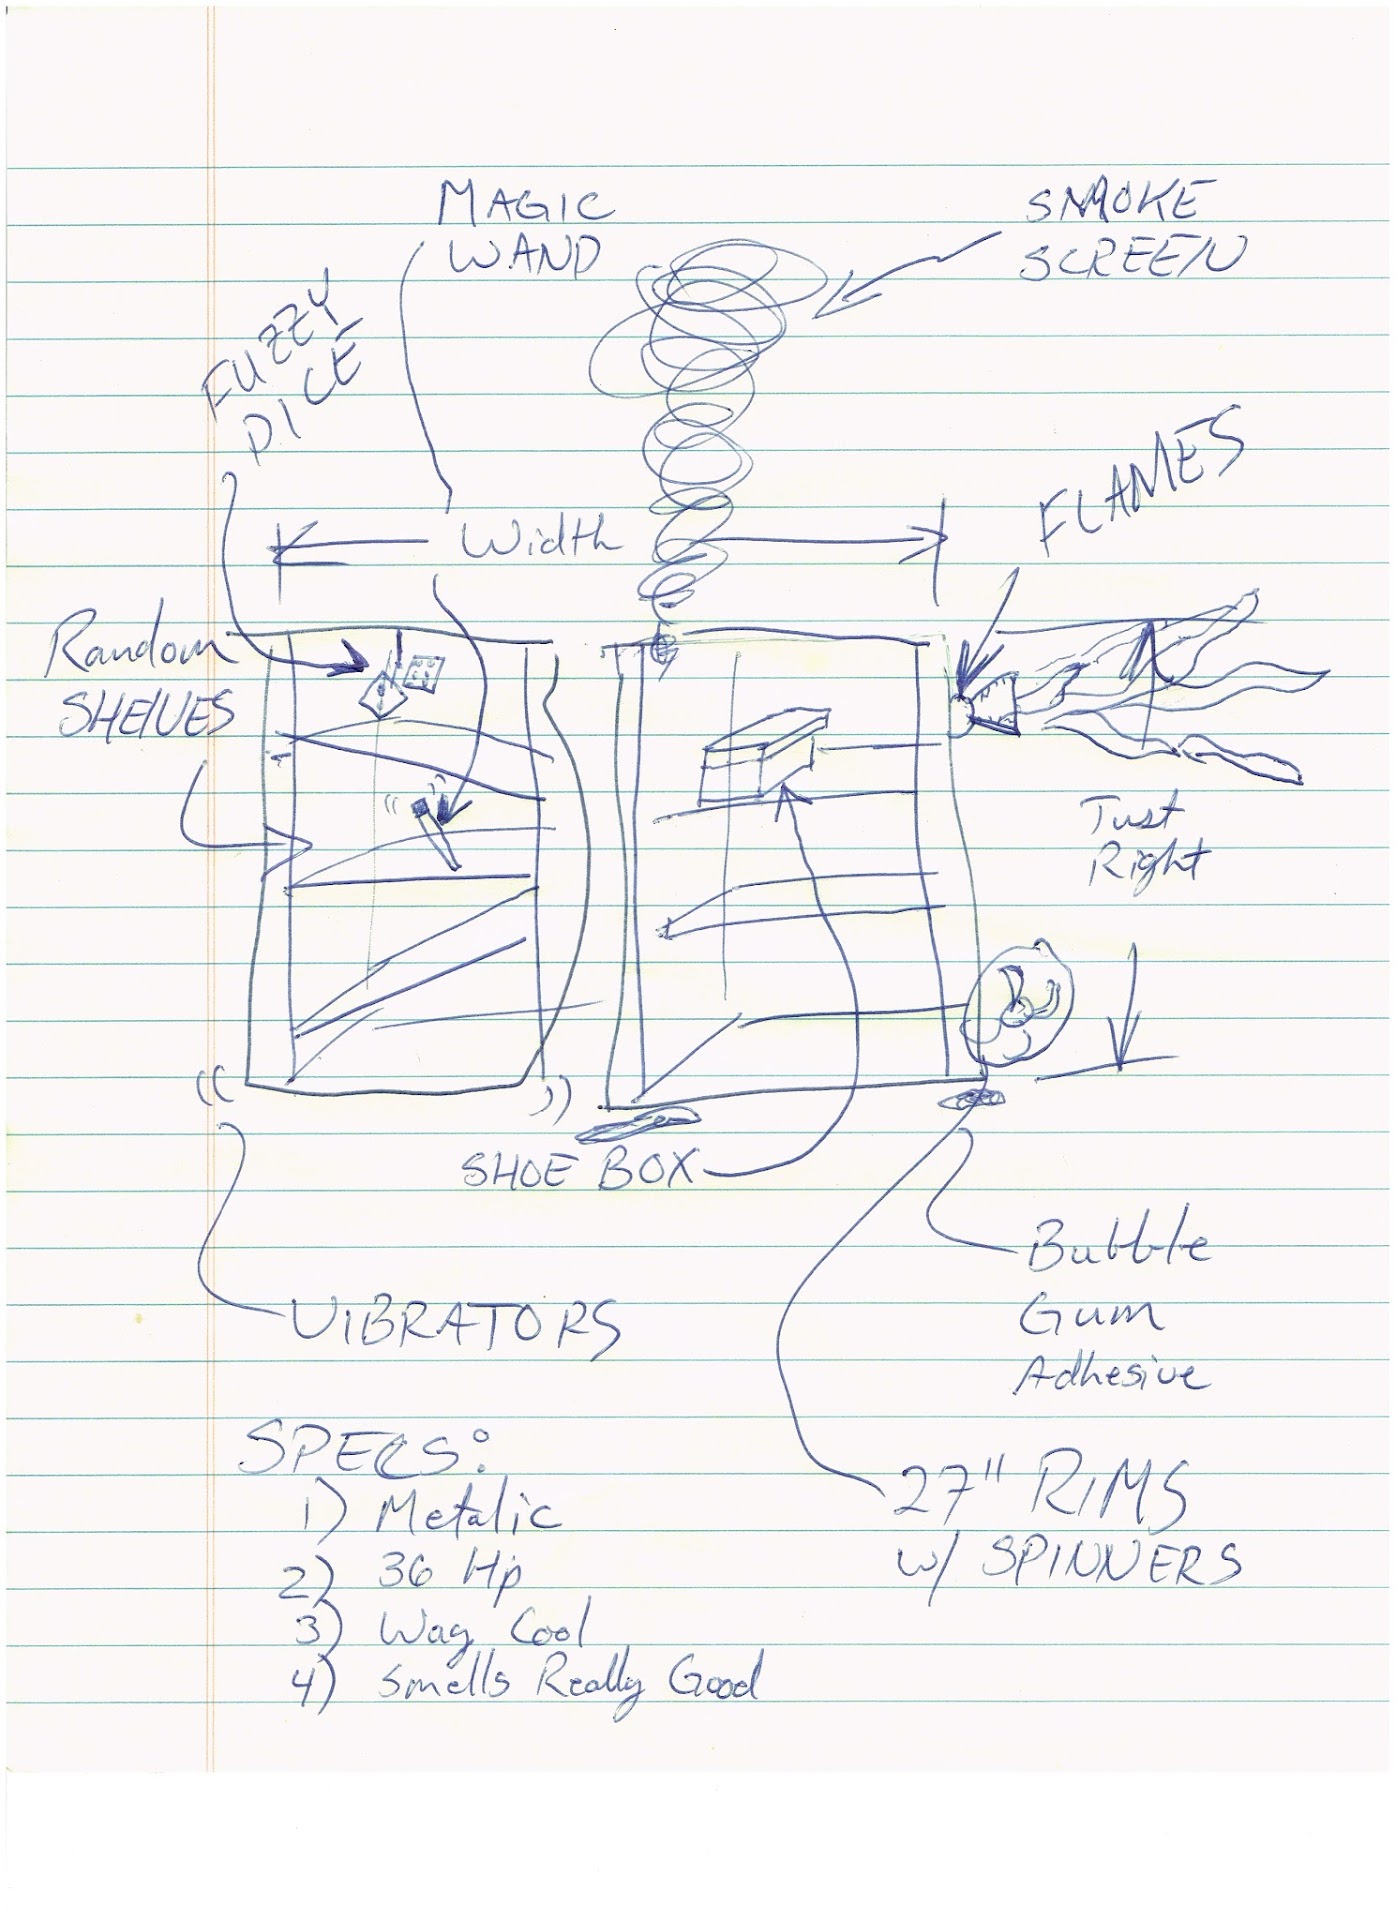 MAGIC
WAND
SMOKE
SCREEN
FUZZY
DICE
FLAMES
Width
Random
SHELVES
Just
Right
SHOE BOX
Bubble
Gum
Adhesive
VIBRATORS
SPECS:
1) Metalic
2) 36 Hp
3) Way Cool
4) Smells Really Good
27" RIMS
w/ SPINNERS